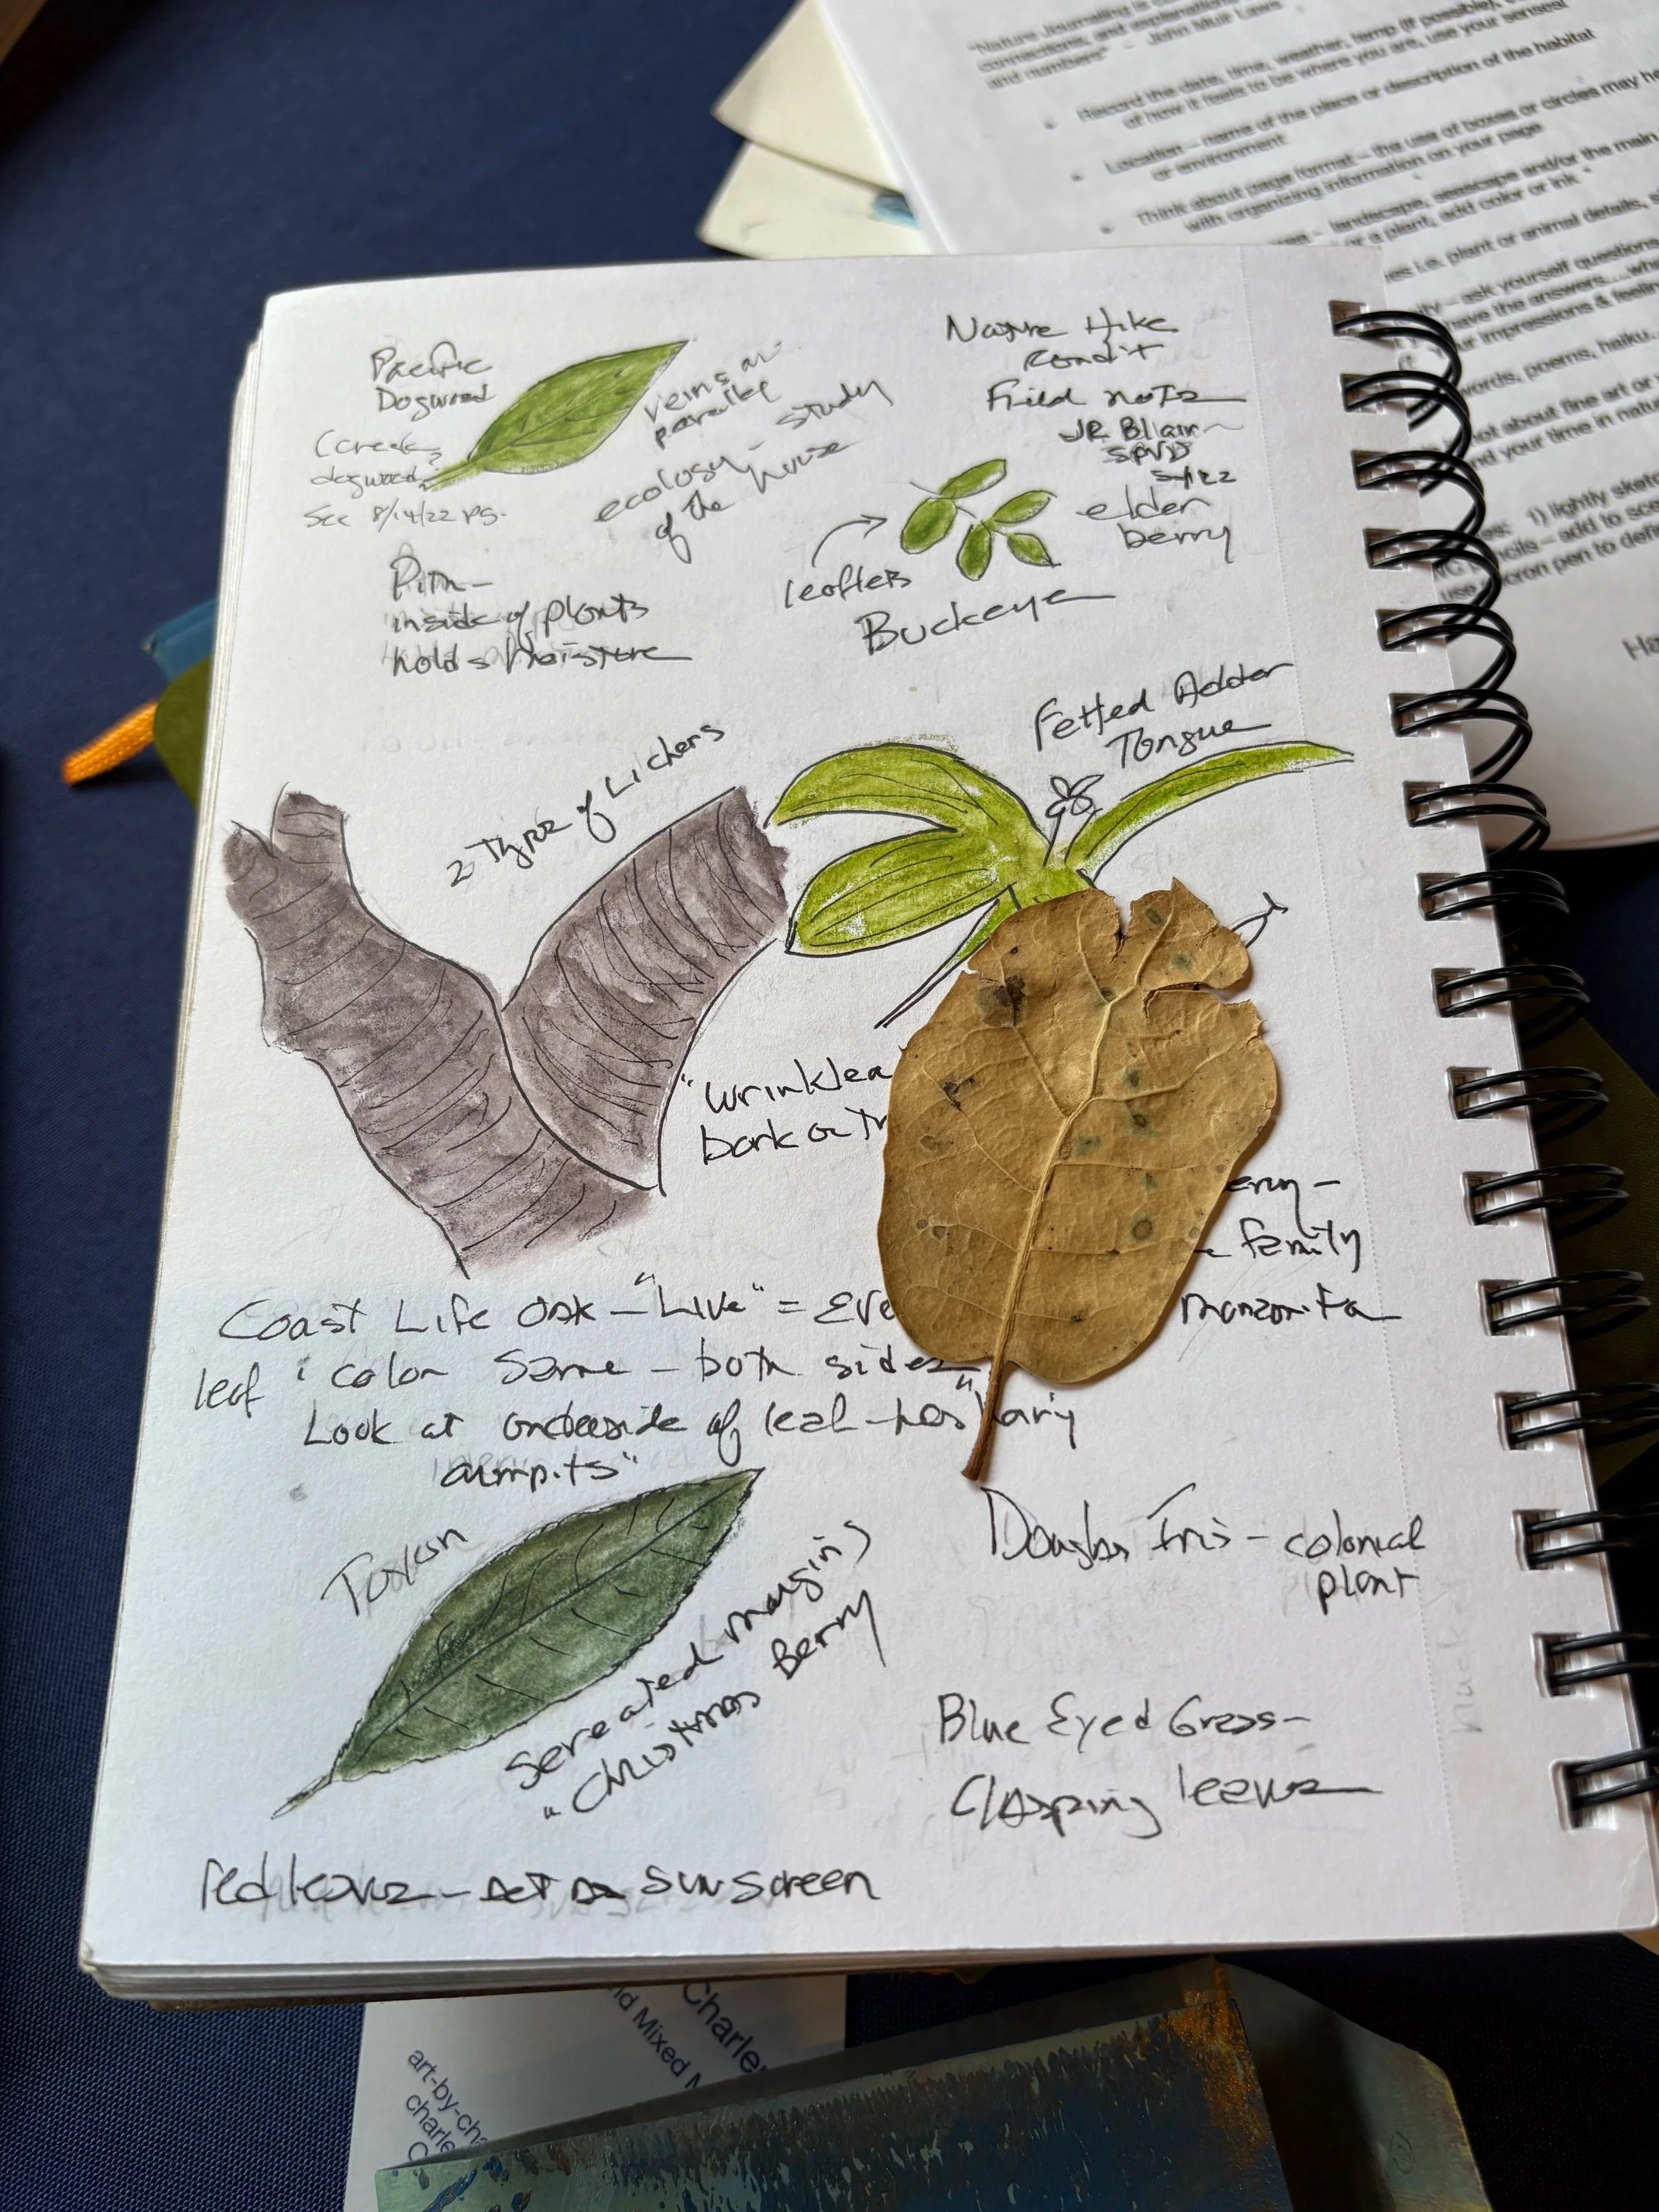 "Nature Journaling is
connections, and explanations
and numbers" - John Muir Laws
• Record the date, time, weather, temp (if possible),
of how it feels to be where you are, use your senses!
• Location – name of the place or description of the habitat
or environment
• Think about page format – the use of boxes or circles may
with organizing information on your page
– landscape, seascape and/or the main
or a plant, add color or ink
i.e. plant or animal details,
– ask yourself questions
have the answers....
impressions &
words, poems, haiku..
not about fine art or
and your time in
1) lightly
– add to
micron pen to
Nature Hike
Field notes
JR Blair
Pacific
Dogwood
(creek
dogwood?
See 8/14/22 pg.
veins are
parallel
ecology - study
of the house
elder
berry
leaflets
Buckeye
Pith -
inside of plants
holds moisture
Fetted Adder
Tongue
2 Types of Lichens
"Wrinkled
bark on
family
manzanita
Coast Life Oak - "Live" =
leaf : color same - both sides
Look at underside of leaf - has "hairy
armpits"
Toyon
Sereated margins
"Christmas Berry
Douglas Iris - colonial
plant
Blue Eyed Grass -
Clasping leaves
red leaves - act as sunscreen
Charle
Mixed
art-by-cha
charle